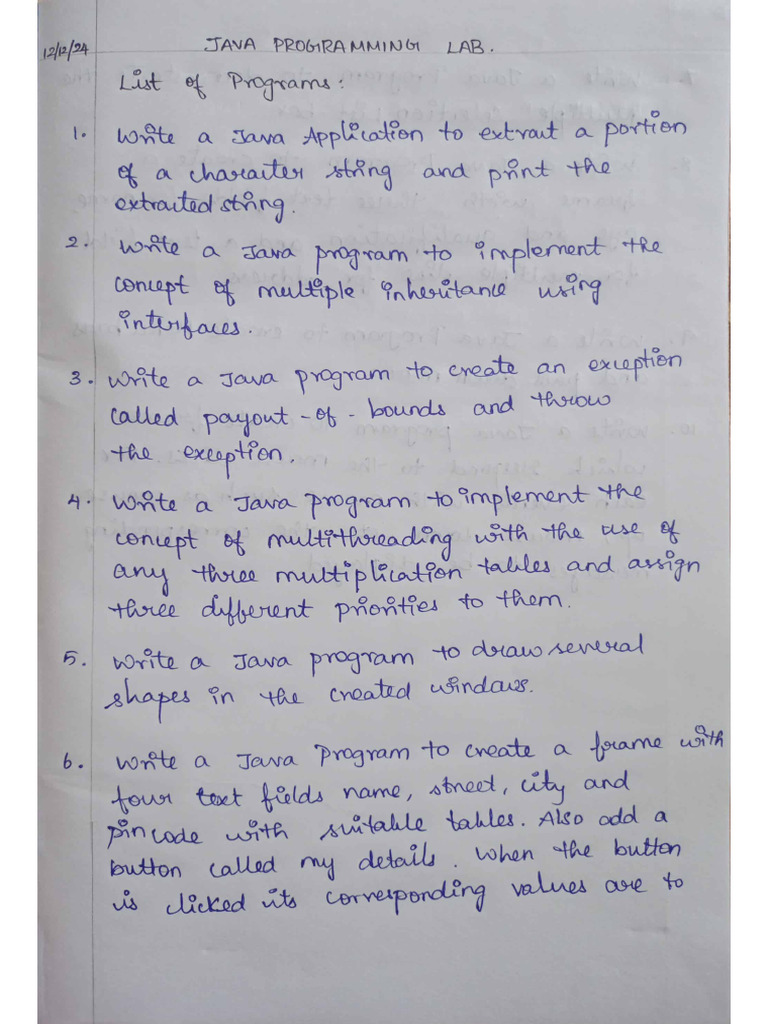 12/12/24
JAVA PROGRAMMING LAB.
List of Programs:
1. Write a Java Application to extract a portion
of a character string and print the
extracted string.
2. Write a Java program to implement the
concept of multiple inheritance using
interfaces.
3. Write a Java program to create an exception
called payout-of-bounds and throw
the exception.
4. Write a Java program to implement the
concept of multithreading with the use of
any three multiplication tables and assign
three different priorities to them.
5. Write a Java program to draw several
shapes in the created windows.
6. Write a Java Program to create a frame with
four text fields name, street, city and
pincode with suitable tables. Also add a
button called my details. When the button
is clicked its corresponding values are to